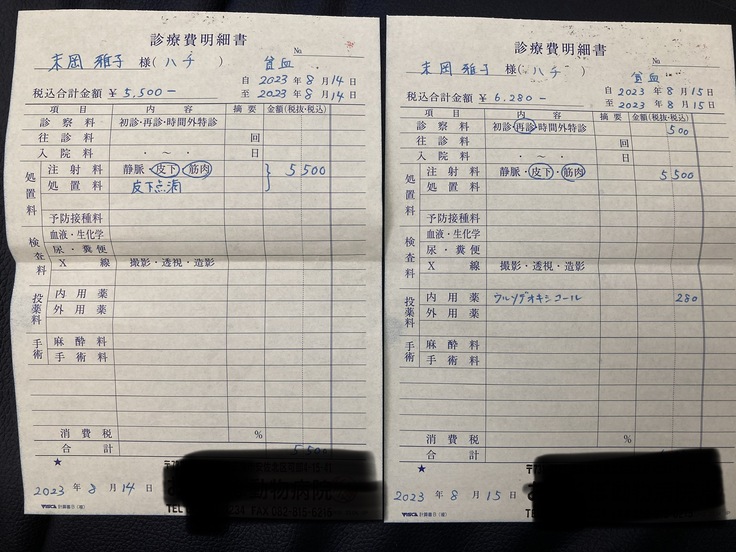 診療費明細書
No
末岡 雅子 様(ハチ )
貧血
自 2023 年 8 月 14 日
至 2023 年 8 月 14 日
税込合計金額 ¥ 5,500-
項 目 内 容 摘 要 金額(税抜・税込)
診 察 料 初診・再診・時間外特診
往 診 料 回
入 院 料 ・ ~ ・ 日
処置料
注 射 料 静脈・皮下・筋肉 5 500
処 置 料 皮下点滴
予防接種料
検査料
血液・生化学
尿・糞便
X 線 撮影・透視・造影
投薬料
内 用 薬
外 用 薬
手術
麻 酔 料
手 術 料
消 費 税 %
合 計 5,500
★
2023 年 8 月 14 日
動物病院
TEL 234 FAX 082-815-6216
診療費明細書
No
末岡 雅子 様(ハチ )
貧血
自 2023 年 8 月 15 日
至 2023 年 8 月 15 日
税込合計金額 ¥ 6,280-
項 目 内 容 摘 要 金額(税抜・税込)
診 察 料 初診・再診・時間外特診 500
往 診 料 回
入 院 料 ・ ~ ・ 日
処置料
注 射 料 静脈・皮下・筋肉 5 500
処 置 料
予防接種料
検査料
血液・生化学
尿・糞便
X 線 撮影・透視・造影
投薬料
内 用 薬 ウルソデオキシコール 280
外 用 薬
手術
麻 酔 料
手 術 料
消 費 税 %
合 計
★
2023 年 8 月 15 日